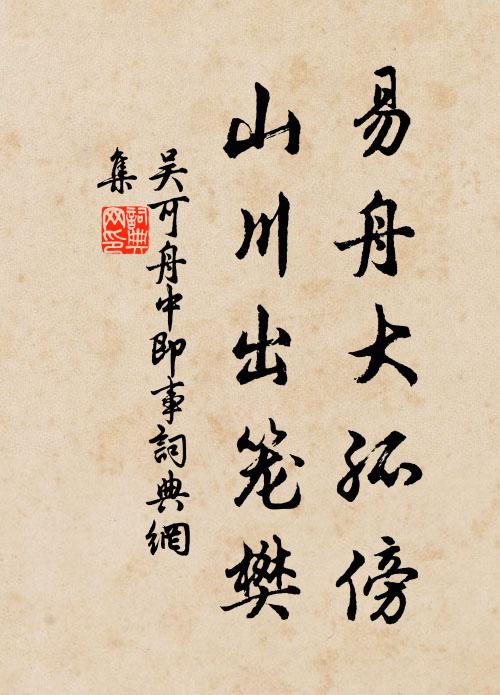 易舟大孤傍
山川出笼樊
吴可舟中即事詞典網
集
詞典
网印